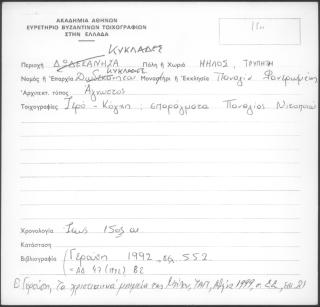 ΑΚΑΔΗΜΙΑ ΑΘΗΝΩΝ
ΕΥΡΕΤΗΡΙΟ ΒΥΖΑΝΤΙΝΩΝ ΤΟΙΧΟΓΡΑΦΙΩΝ
ΣΤΗΝ ΕΛΛΑΔΑ
ΚΥΚΛΑΔΕΣ
Περιοχή ΔΩΔΕΚΑΝΗΣΑ Πόλη ή Χωριό ΜΗΛΟΣ, ΤΡΥΠΗΤΗ
ΚΥΚΛΑΔΕΣ
Νομός ή Επαρχία Δωδεκανήσου Μοναστήρι ή Εκκλησία Παναγία
Αρχιτεκτ. τύπος Άγνωστος
Τοιχογραφίες Ιερό - Κόγχη : σπαράγματα Παναγίας
Χρονολογία Ίσως 15ος αι
Κατάσταση
Βιβλιογραφία Γερούση 1992 σελ. 552.
= ΑΔ 47 (1992) Β2
Ε. Γερούση, Τα χριστιανικά μνημεία της Μήλου, ΥΠΠ, Αθήνα 1999, σ. 22,